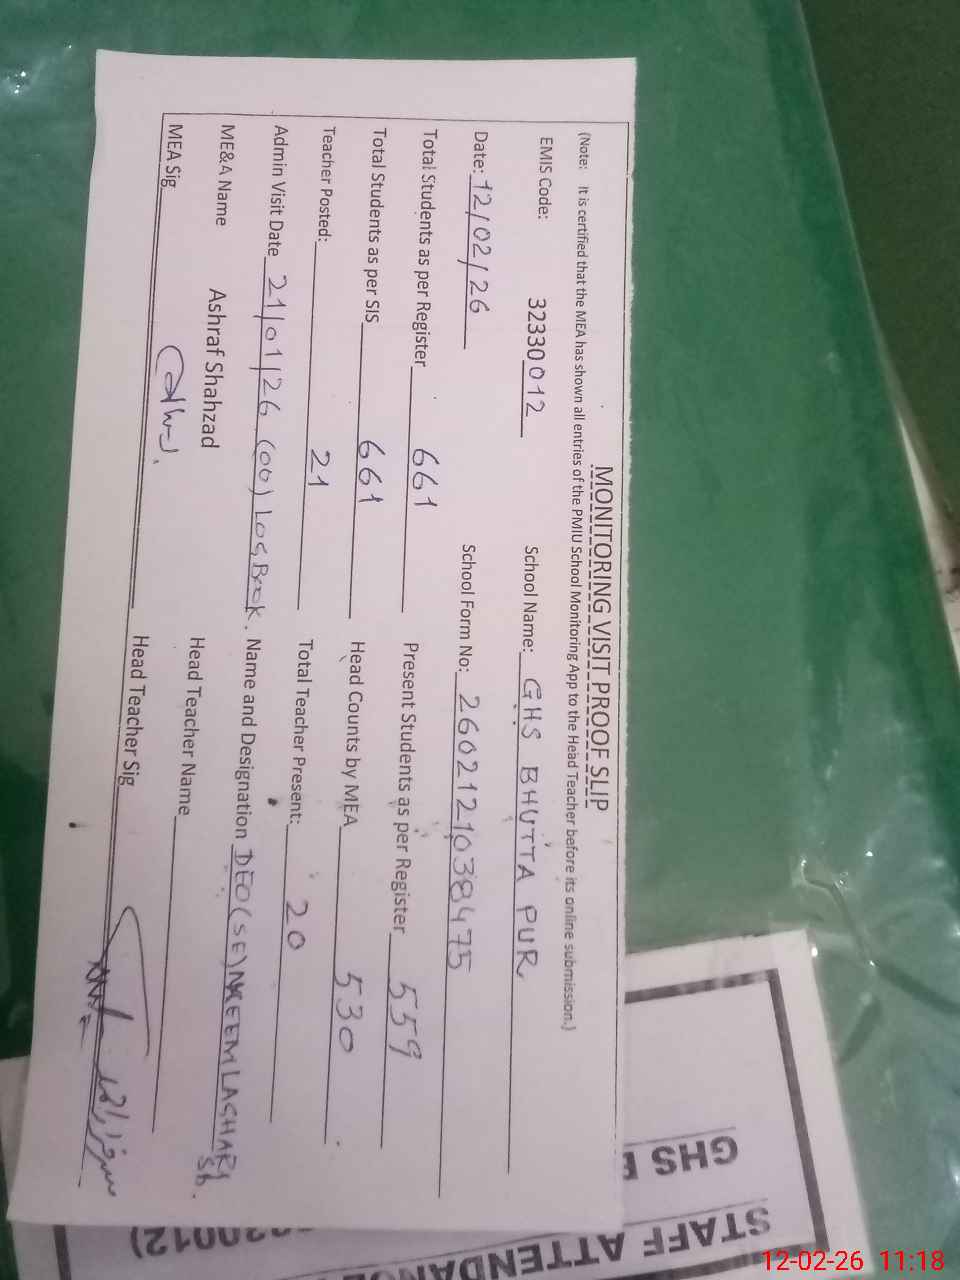 MONITORING VISIT PROOF SLIP
(Note: It is certified that the MEA has shown all entries of the PMIU School Monitoring App to the Head Teacher before its online submission.)
EMIS Code: 32330012 School Name: GHS BHUTTA PUR
Date: 12/02/26 School Form No: 2602121038475
Total Students as per Register 661 Present Students as per Register 559
Total Students as per SIS 661 Head Counts by MEA 530
Teacher Posted: 21 Total Teacher Present: 20
Admin Visit Date 21/01/26 (00) Log Book. Name and Designation DEO(SE) NAEEM LAGHARI Sb.
ME&A Name Ashraf Shahzad Head Teacher Name
MEA Sig Head Teacher Sig
GHS
STAFF ATTENDANCE
30012)
12-02-26 11:18